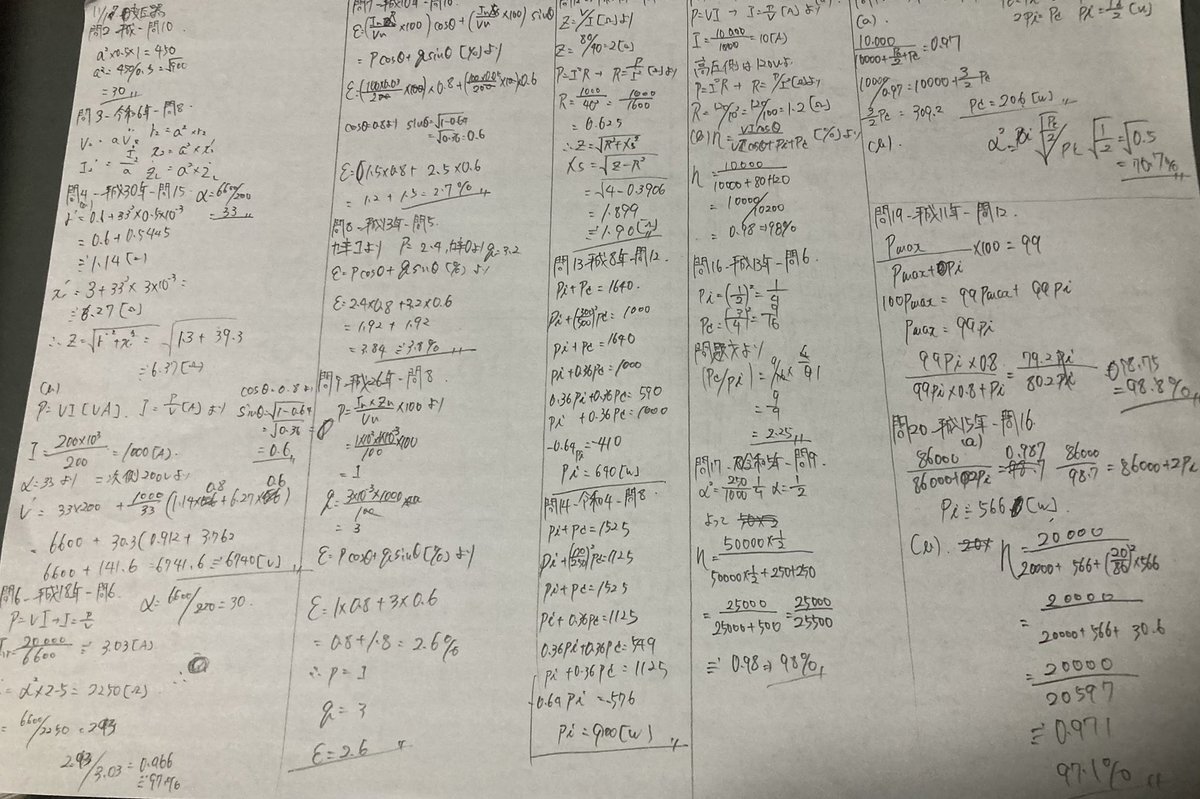 11/18 変圧器
問2-平成-問10
a²×0.5×1=450
a²=450/0.5=√900
=30
問3-令和6年-問8
V₁'=aV₂ r₂'=a²×r₂
I₂'=I₂/a x₂'=a²×x₂
Z_L'=a²×Z_L
問4-平成30年-問15 α=6600/200
=33
r'=0.6+33²×0.5×10⁻³
=0.6+0.5445
≒1.14[Ω]
x'=3+33²×3×10⁻³=
≒6.27[Ω]
∴Z=√r²+x²=√1.3+39.3
≒6.37[Ω]
(b) cosθ=0.8より
P=VI[VA]、I=P/V[A]より sinθ=√1-0.64
=√0.36
=0.6
I=200×10³/200=1000[A]
α=33より 二次側200Vより
V'=33×200+1000/33(1.14×0.8+6.27×0.6)
=6600+30.3(0.912+3.762
6600+141.6=6741.6≒6740[V]
問6-平成18年-問6
P=VI→I=P/V α=6600/220=30
I=20000/6600≒3.03[A]
=α²×2.5=2250[Ω]
=6600/2250=2.93
2.93/3.03=0.966
≒97%
ε=Pcosθ+qsinθ[%]より
cosθ=0.8より sinθ=√1-0.64
=√0.36=0.6
ε=(1.5×0.8+2.5×0.6
=1.2+1.5=2.7%
問8-平成13年-問5
P=2.4, q=3.2
ε=Pcosθ+qsinθ[%]より
ε=2.4×0.8+3.2×0.6
=1.92+1.92
=3.84≒3.8%
問9-平成26年-問8
P=In×Zn/Vn×100より
=1
q=3×10³×1000/100
=3
ε=Pcosθ+qsinθ[%]より
ε=1×0.8+3×0.6
=0.8+1.8=2.6%
∴P=1
q=3
ε=2.6
Z=V/I[Ω]より
Z=80/40=2[Ω]
P=I²R→R=P/I²[Ω]より
R=1000/40²=1000/1600
=0.625
∴Z=√R²+Xs²
Xs=√Z-R²
=√4-0.3906
=1.899
≒1.90[Ω]
問13-平成8年-問12
Pi+Pc=1640
Pi+(300/500)²Pc=1000
Pi+Pc=1640
Pi+0.36Pc=1000
0.36Pi+0.36Pc=590
Pi+0.36Pc=1000
-0.64Pi=-410
Pi=640[W]
問14-令和04-問8
Pi+Pc=1525
Pi+(150/250)²Pc=1125
Pi+Pc=1525
Pi+0.36Pc=1125
0.36Pi+0.36Pc=549
Pi+0.36Pc=1125
-0.64Pi=-576
Pi=900[W]
P=VI→I=P/V[A]より
I=10.000/1000=10[A]
高圧側は120Vより
P=I²R→R=P/I²[Ω]より
R=120/10²=120/100=1.2[Ω]
(b)η=VIcosθ/VIcosθ+Pi+Pc[%]より
η=10.000/10000+80+120
=10000/10200
=0.98⇒98%
問16-平成13年-問6
Pi=(1/2)²=1/4
Pc=(3/4)²=9/16
問題文より
(Pc/Pi)=9/16×4/1
=9/4
=2.25
問17-令和5年-問9
α²=250/1000=1/4 α=1/2
よって
η=50000×1/2/50000×1/2+250+250
=25000/25000+500=25000/25500
≒0.98⇒98%
2Pi=Pc Pi=Pc/2[W]
(a)
10.000/10000+Pc/2+Pc=0.97
10000/0.97=10000+3/2Pc
3/2Pc=309.2 Pc=206[W]
(b) α²=Pi√Pc/2/Pc √1/2=√0.5
=70.7%
問19-平成11年-問12
Pmax/Pmax+Pi×100=99
100Pmax=99Pmax+99Pi
Pmax=99Pi
99Pi×0.8/99Pi×0.8+Pi=79.2Pi/80.2Pi 98.75
=98.8%
問20-平成15年-問16
(a)
86000/86000+2Pi=0.987 86000/98.7=86000+2Pi
Pi≒566[W]
(b) η=20000/20000+566+(20/86)²×566
=20000/20000+566+30.6
=20000/20597
≒0.971
97.1%